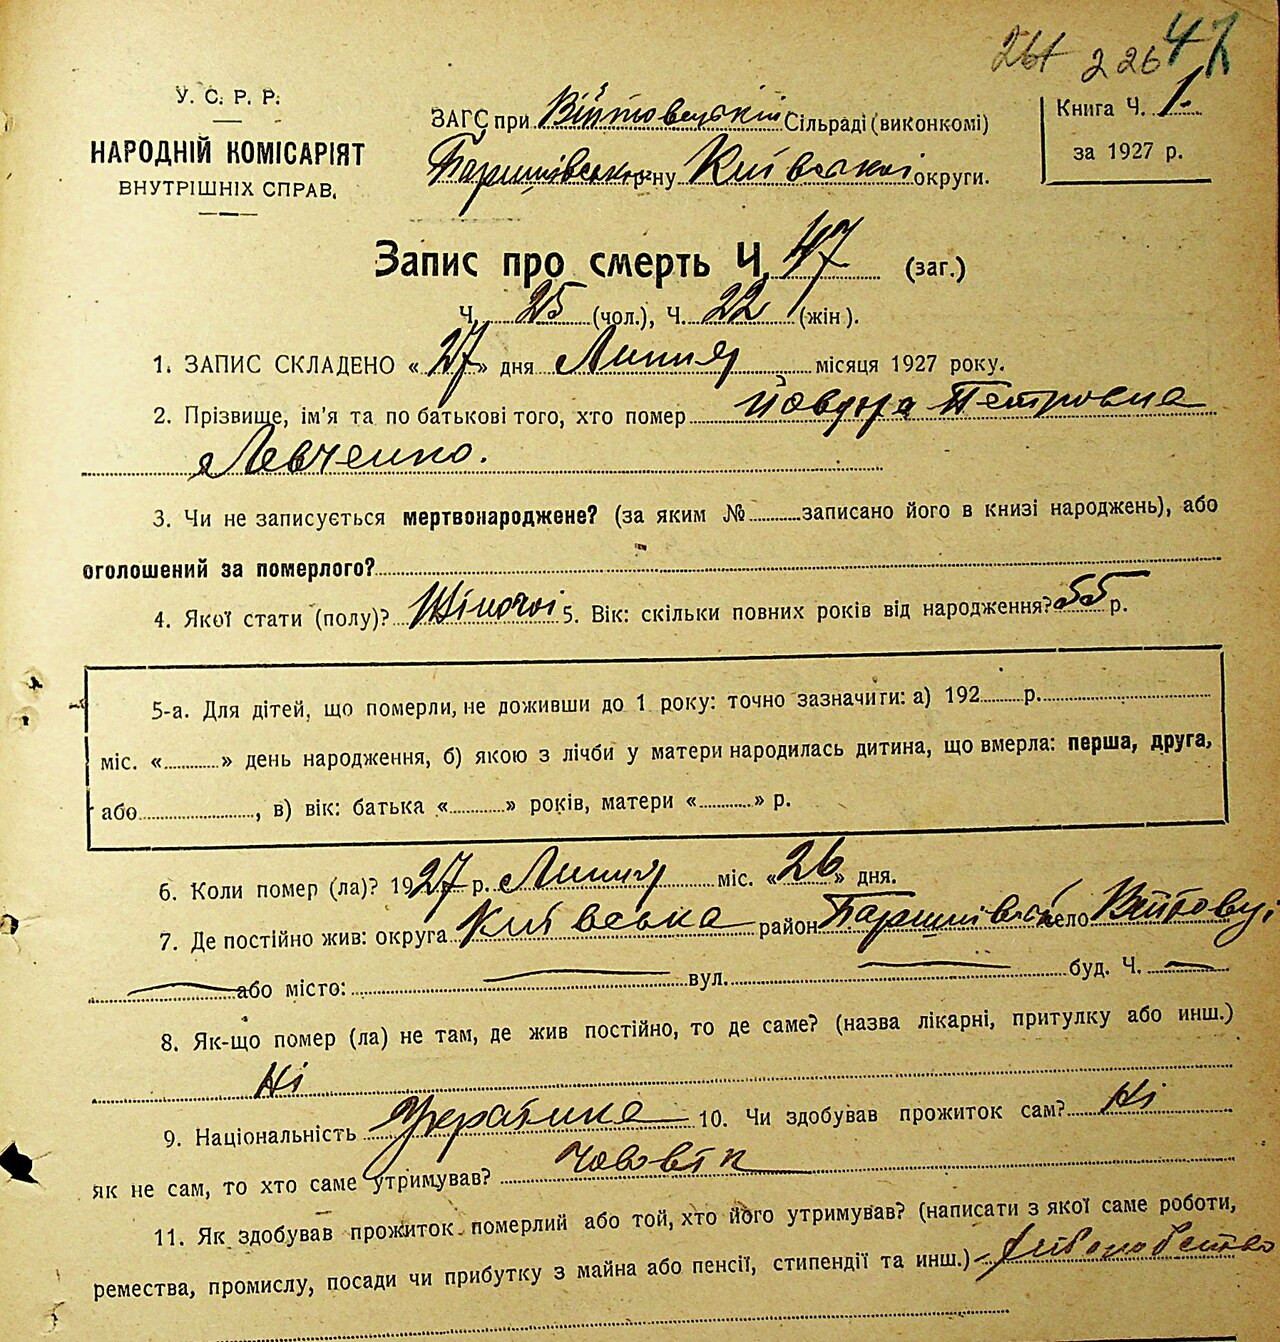 264 226 47
У. С. Р. Р.
НАРОДНІЙ КОМІСАРІЯТ
ВНУТРІШНІХ СПРАВ.
ЗАГС при Війтовецькій Сільраді (виконкомі)
Баришівськ р-ну Київської округи.
Книга Ч. 1.
за 1927 р.
Запис про смерть Ч. 47 (заг.)
Ч. 25 (чол.), Ч. 22 (жін).
1. ЗАПИС СКЛАДЕНО « 27 » дня Липня місяця 1927 року.
2. Прізвище, ім'я та по батькові того, хто помер Йовдоха Петровна
Левченко.
3. Чи не записується мертвонароджене? (за яким № записано його в книзі народжень), або
оголошений за померлого?
4. Якої стати (полу)? Жіночої 5. Вік: скільки повних років від народження? 55 р.
5-а. Для дітей, що померли, не доживши до 1 року: точно зазначити: а) 192 р.
міс. « » день народження, б) якою з лічби у матери народилась дитина, що вмерла: перша, друга,
або , в) вік: батька « » років, матери « » р.
6. Коли помер (ла)? 1927 р. Липня міс. « 26 » дня.
7. Де постійно жив: округа Київська район Баришівськ село Війтовці
або місто: вул. буд. Ч.
8. Як-що помер (ла) не там, де жив постійно, то де саме? (назва лікарні, притулку або инш.)
Ні
9. Національність Українка 10. Чи здобував прожиток сам? Ні
як не сам, то хто саме утримував? Чоловік
11. Як здобував прожиток померлий або той, хто його утримував? (написати з якої саме роботи,
ремества, промислу, посади чи прибутку з майна або пенсії, стипендії та инш.) Хліборобство